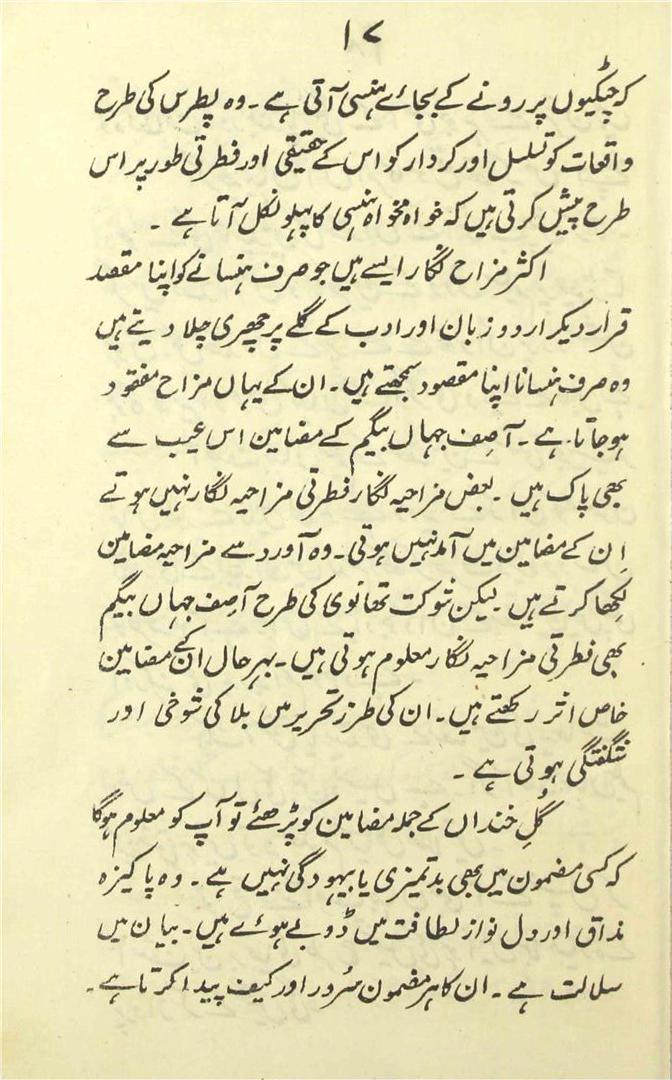 ۱۷
کہ چٹکیوں پر رونے کے بجائے ہنسی آتی ہے ۔ وہ پطرس کی طرح
واقعات کو تسلسل اور کردار کو اس کے حقیقی اور فطرتی طور پر اس
طرح پیش کرتی ہیں کہ خواہ مخواہ ہنسی کا پہلو نکل آتا ہے ۔
اکثر مزاح نگار ایسے ہیں جو صرف ہنسانے کو اپنا مقصد
قرار دیکر اردو زبان اور ادب کے گلے پر چھری چلا دیتے ہیں
وہ صرف ہنسانا اپنا مقصود سمجھتے ہیں ۔ ان کے یہاں مزاح مفقود
ہو جاتا ہے ۔ آصف جہاں بیگم کے مضامین اس عیب سے
بھی پاک ہیں ۔ بعض مزاحیہ نگار فطرتی مزاحیہ نگار نہیں ہوتے
اِن کے مضامین میں آمد نہیں ہوتی ۔ وہ آورد سے مزاحیہ مضامین
لکھا کرتے ہیں ۔ لیکن شوکت تھانوی کی طرح آصف جہاں بیگم
بھی فطرتی مزاحیہ نگار معلوم ہوتی ہیں ۔ بہر حال ان کے مضامین
خاص اثر رکھتے ہیں ۔ ان کی طرز تحریر میں بلا کی شوخی اور
شگفتگی ہوتی ہے ۔
گُلِ خنداں کے جملہ مضامین کو پڑھئے تو آپ کو معلوم ہوگا
کہ کسی مضمون میں بھی بدتمیزی یا بیہودگی نہیں ہے ۔ وہ پاکیزہ
مذاق اور دل نواز لطافت میں ڈوبے ہوئے ہیں ۔ بیان میں
سلالت ہے ۔ ان کا ہر مضمون سُرور اور کیف پیدا کرتا ہے ۔